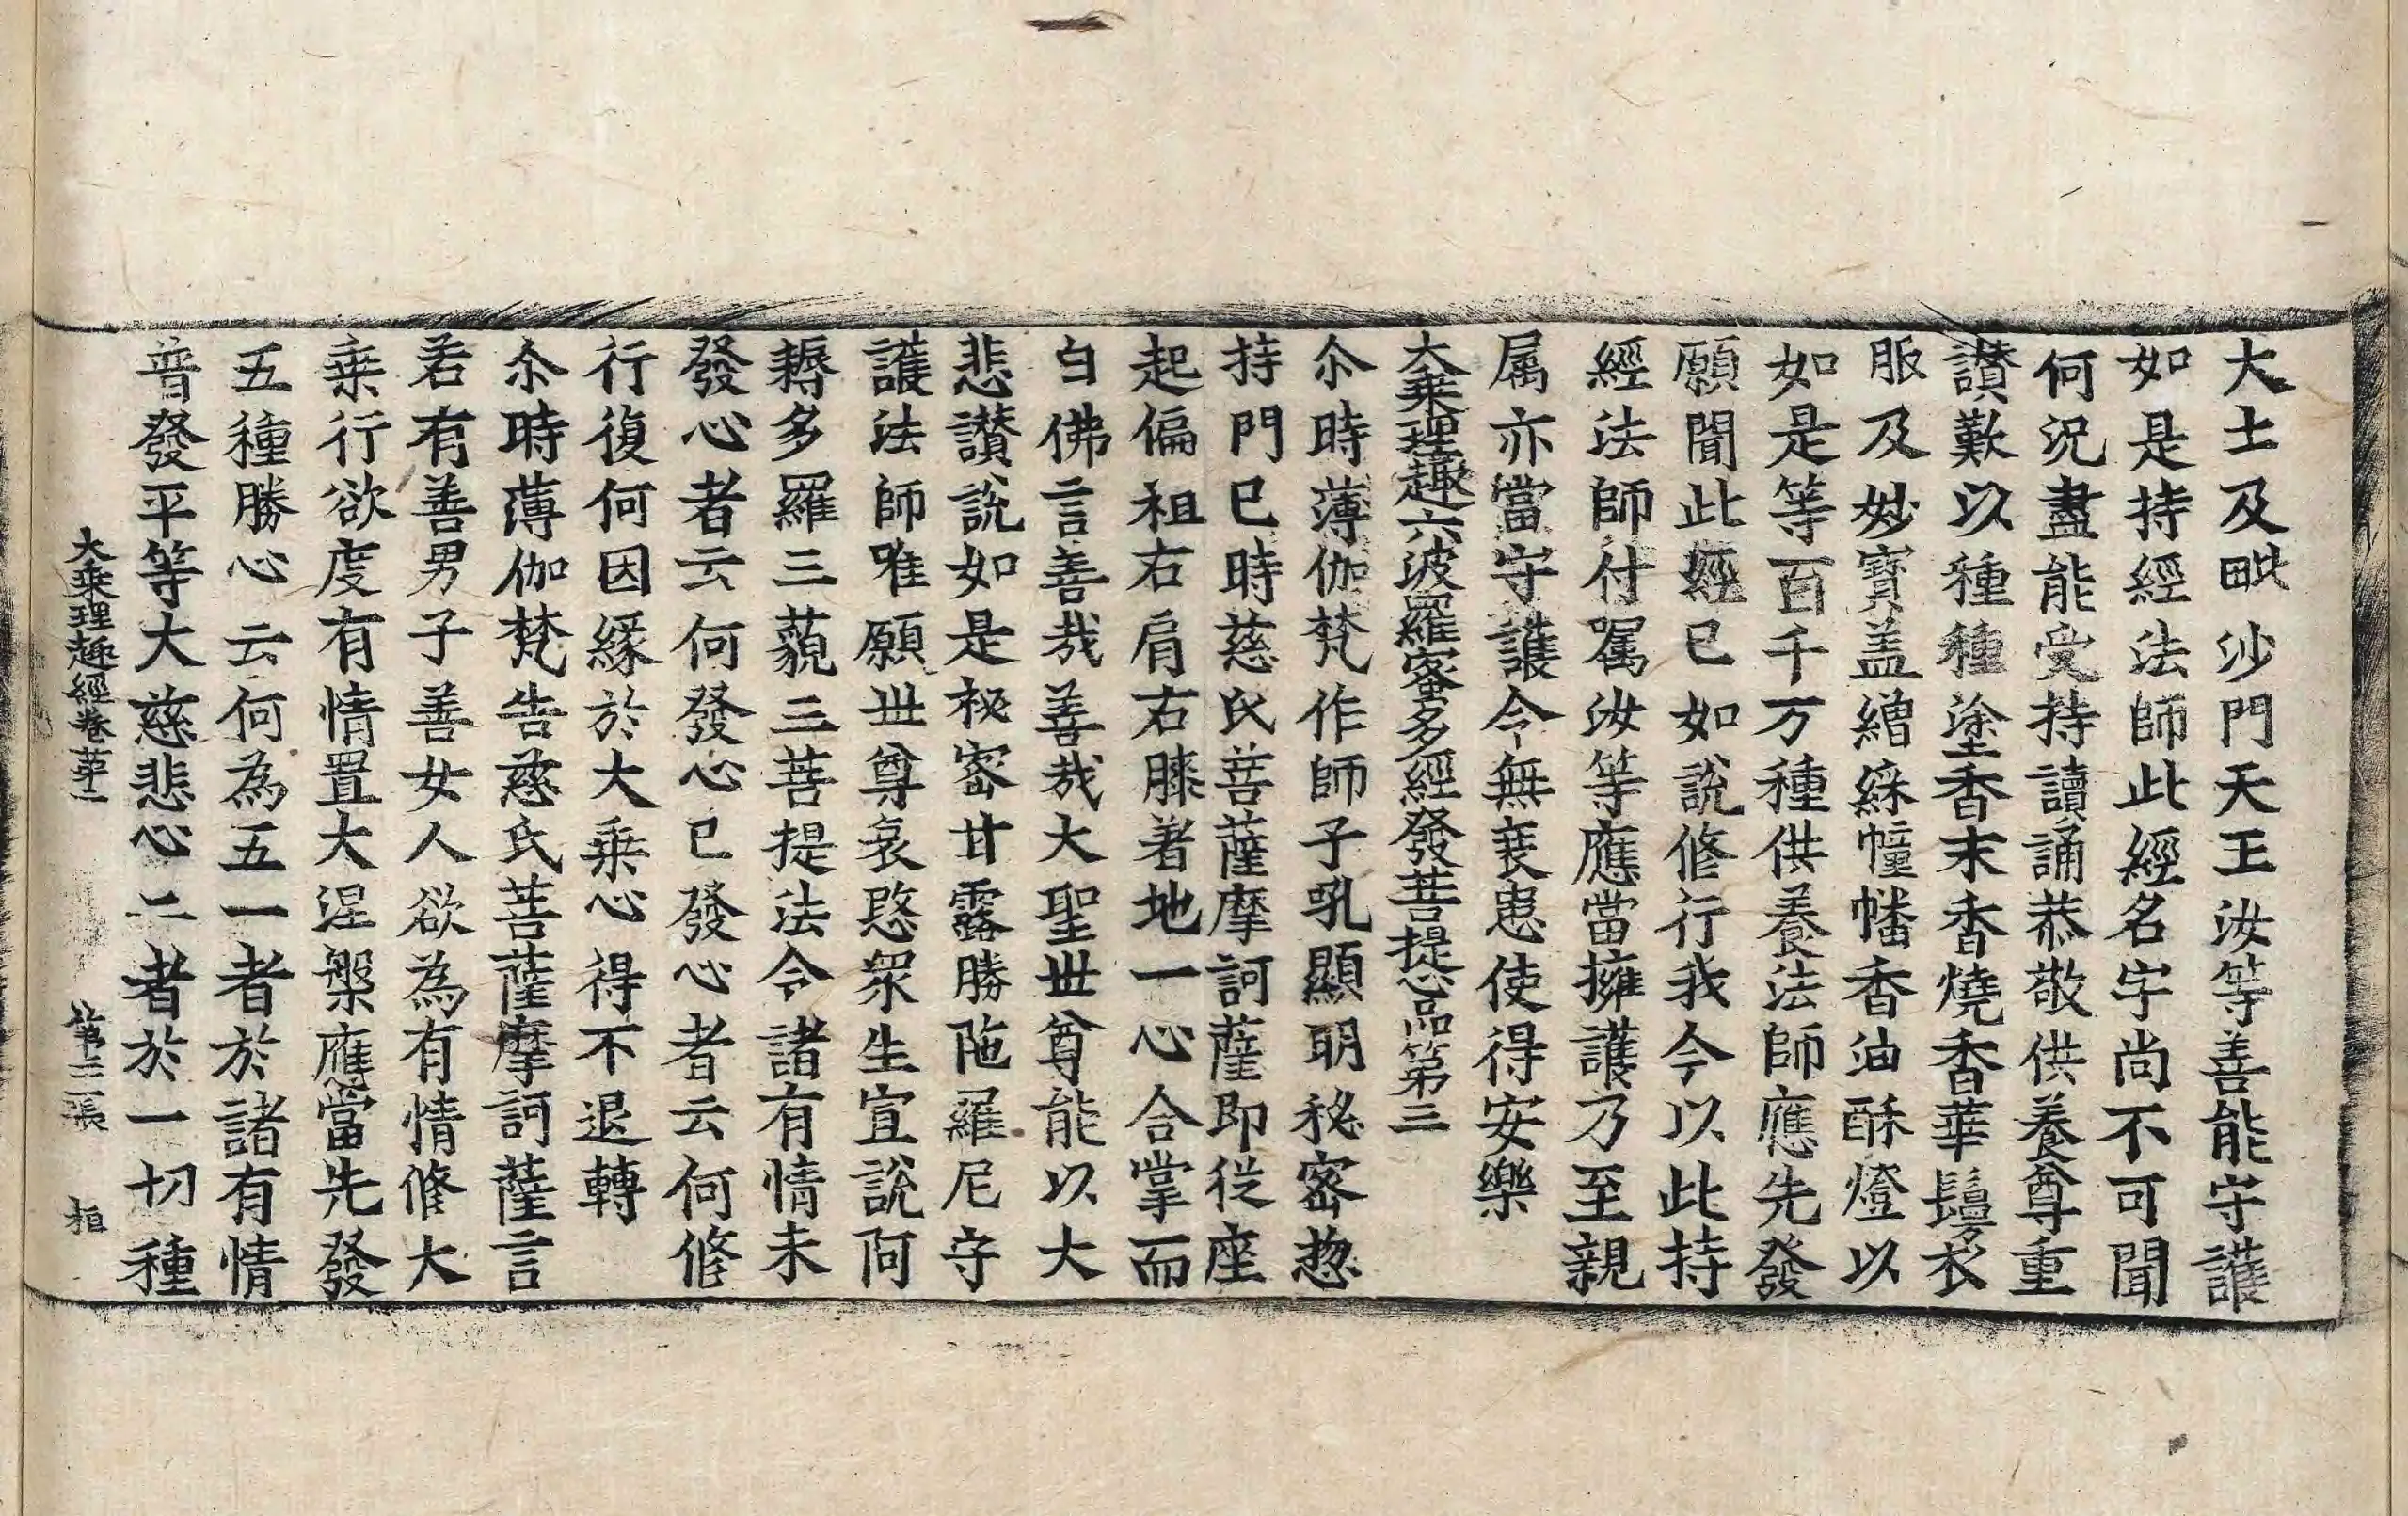 大士及毗沙門天王汝等善能守護
如是持經法師此經名字尚不可聞
何況盡能受持讀誦恭敬供養尊重
讃歎以種種塗香末香燒香華鬘衣
服及妙寶盖繒綵幢幡香油酥燈以
如是等百千万種供養法師應先發
願聞此經已如說修行我今以此持
經法師付嘱汝等應當擁護乃至親
属亦當守護令無衰患使得安樂
大乗理趣六波羅蜜多經發菩提心品第三
尒時薄伽梵作師子吼顯明秘密惣
持門已時慈氏菩薩摩訶薩即從座
起偏袒右肩右膝著地一心合掌而
白佛言善哉善哉大聖世尊能以大
悲讃說如是秘密甘露勝陁羅尼守
護法師唯願世尊哀愍衆生宣說阿
耨多羅三藐三菩提法令諸有情未
發心者云何發心已發心者云何修
行復何因緣於大乗心得不退轉
尒時薄伽梵告慈氏菩薩摩訶薩言
若有善男子善女人欲為有情修大
乗行欲度有情置大涅槃應當先發
五種勝心云何為五一者於諸有情
普發平等大慈悲心二者於一切種
大乗理趣經卷第一 第三張 桓